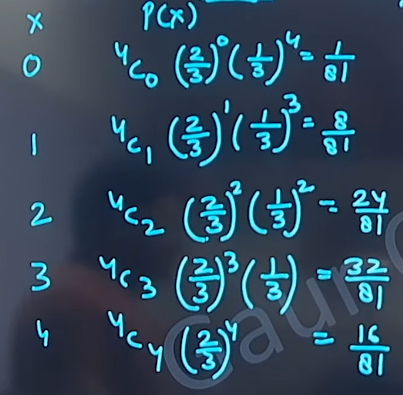 x P(x)
0 ⁴C₀ (2/3)⁰ (1/3)⁴ = 1/81
1 ⁴C₁ (2/3)¹ (1/3)³ = 8/81
2 ⁴C₂ (2/3)² (1/3)² = 24/81
3 ⁴C₃ (2/3)³ (1/3) = 32/81
4 ⁴C₄ (2/3)⁴ = 16/81